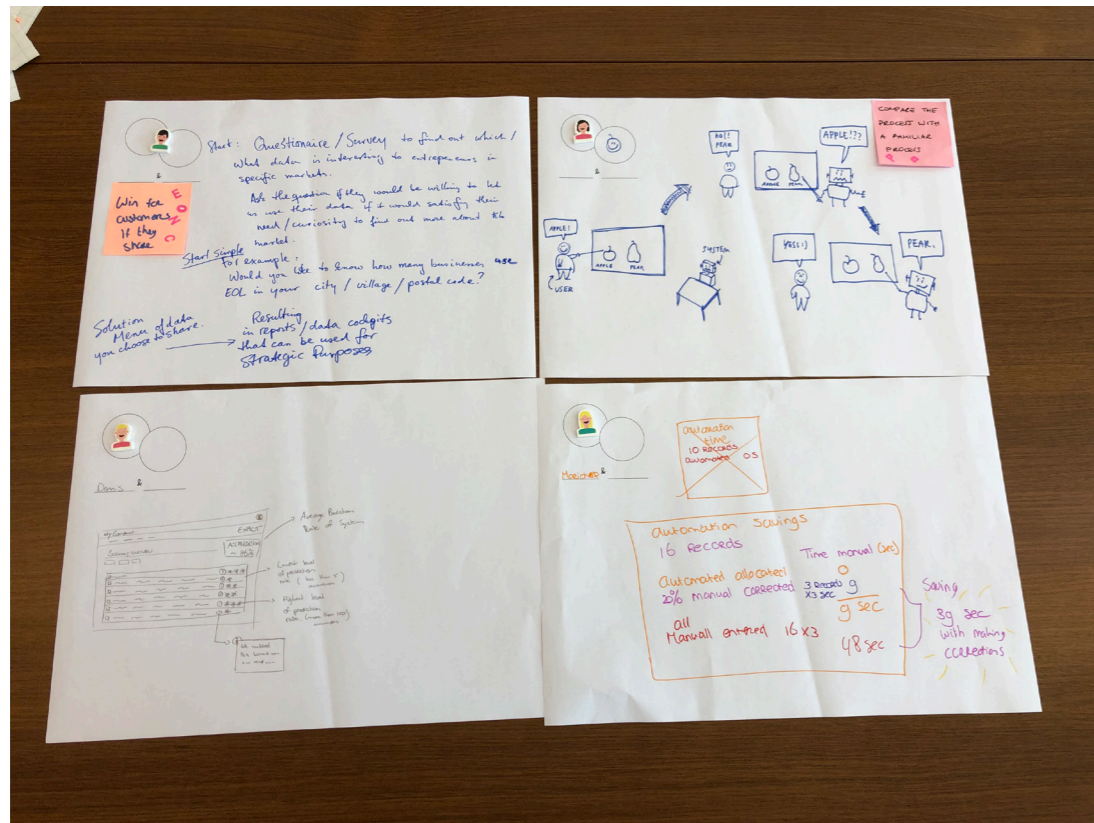 Start: Questionaire / Survey to find out which /
what data is interesting to entrepeneurs in
specific markets.
Ask the question if they would be willing to let
us use their data if it would satisfy their
need / curiosity to find out more about the
market.
Start simple
for example:
Would you like to know how many businesses use
EOL in your city / village / postal code?
Solution
Menu of data
you choose to share.
Resulting
in reports / data cockpits
that can be used for
Strategic Purposes
&
Win for
customers
if they
share
E
O
N
C
&
COMPARE THE
PROCESS WITH
A FAMILIAR
PROCESS
APPLE!
USER
APPLE
PEAR
SYSTEM
NO!!
PEAR
APPLE
PEAR
APPLE!??
YESS:)
PEAR.
Denis &
EXACT
Average Prediction
Rate of System
Lowest level
of prediction
Highest level
of prediction
Marichelle &
automation
time
10 Records
automated 0 S
automation savings
16 Records
Time manual (sec)
automated allocated 0
20% manual corrected 3 Records x3 sec 9
9 sec
all
Manuall entered 16 x 3 48 sec
Saving
39 sec
with making
corrections